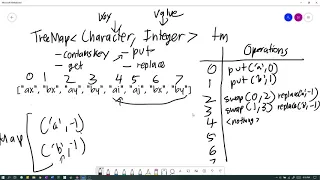 key value
TreeMap<Character, Integer> tm
- containskey - put
- get - replace
Operations
0 1 2 3 4 5 6 7
["ax", "bx", "ay", "by", "ai", "aj", "bx", "by"]
map
('a', -1)
('b', -1)
0 put('a', 0)
1 put('b', 1)
2 swap(0, 2) replace('a', -1)
3 swap(1, 3) replace('b', -1)
4 <nothing>
5
6
7